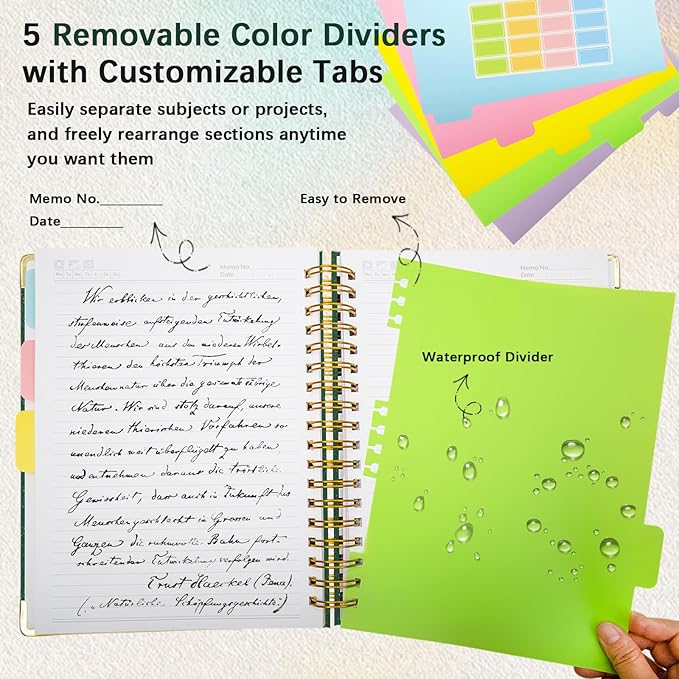 5 Removable Color Dividers
with Customizable Tabs
Easily separate subjects or projects,
and freely rearrange sections anytime
you want them
Memo No.
Date
Easy to Remove
Memo No.
Date
Memo No.
Date
Wir erblicken in der geschichtlichen,
stufenweise aufsteigenden Entwickelung
der Menschen aus den niederen Wirbel-
thieren den höchsten Triumph der
Menschennatur über die gesammte übrige
Natur. Wir sind stolz darauf, unsere
niederen thierischen Vorfahren so
unendlich weit überflügelt zu haben
und entnehmen daraus die tröstliche
Gewissheit, dass auch in Zukunft das
Menschengeschlecht im Grossen und
Ganzen die ruhmvolle Bahn fort-
schreitender Entwickelung verfolgen wird.
Ernst Haeckel (Jena).
(„Natürliche Schöpfungsgeschichte.")
Waterproof Divider